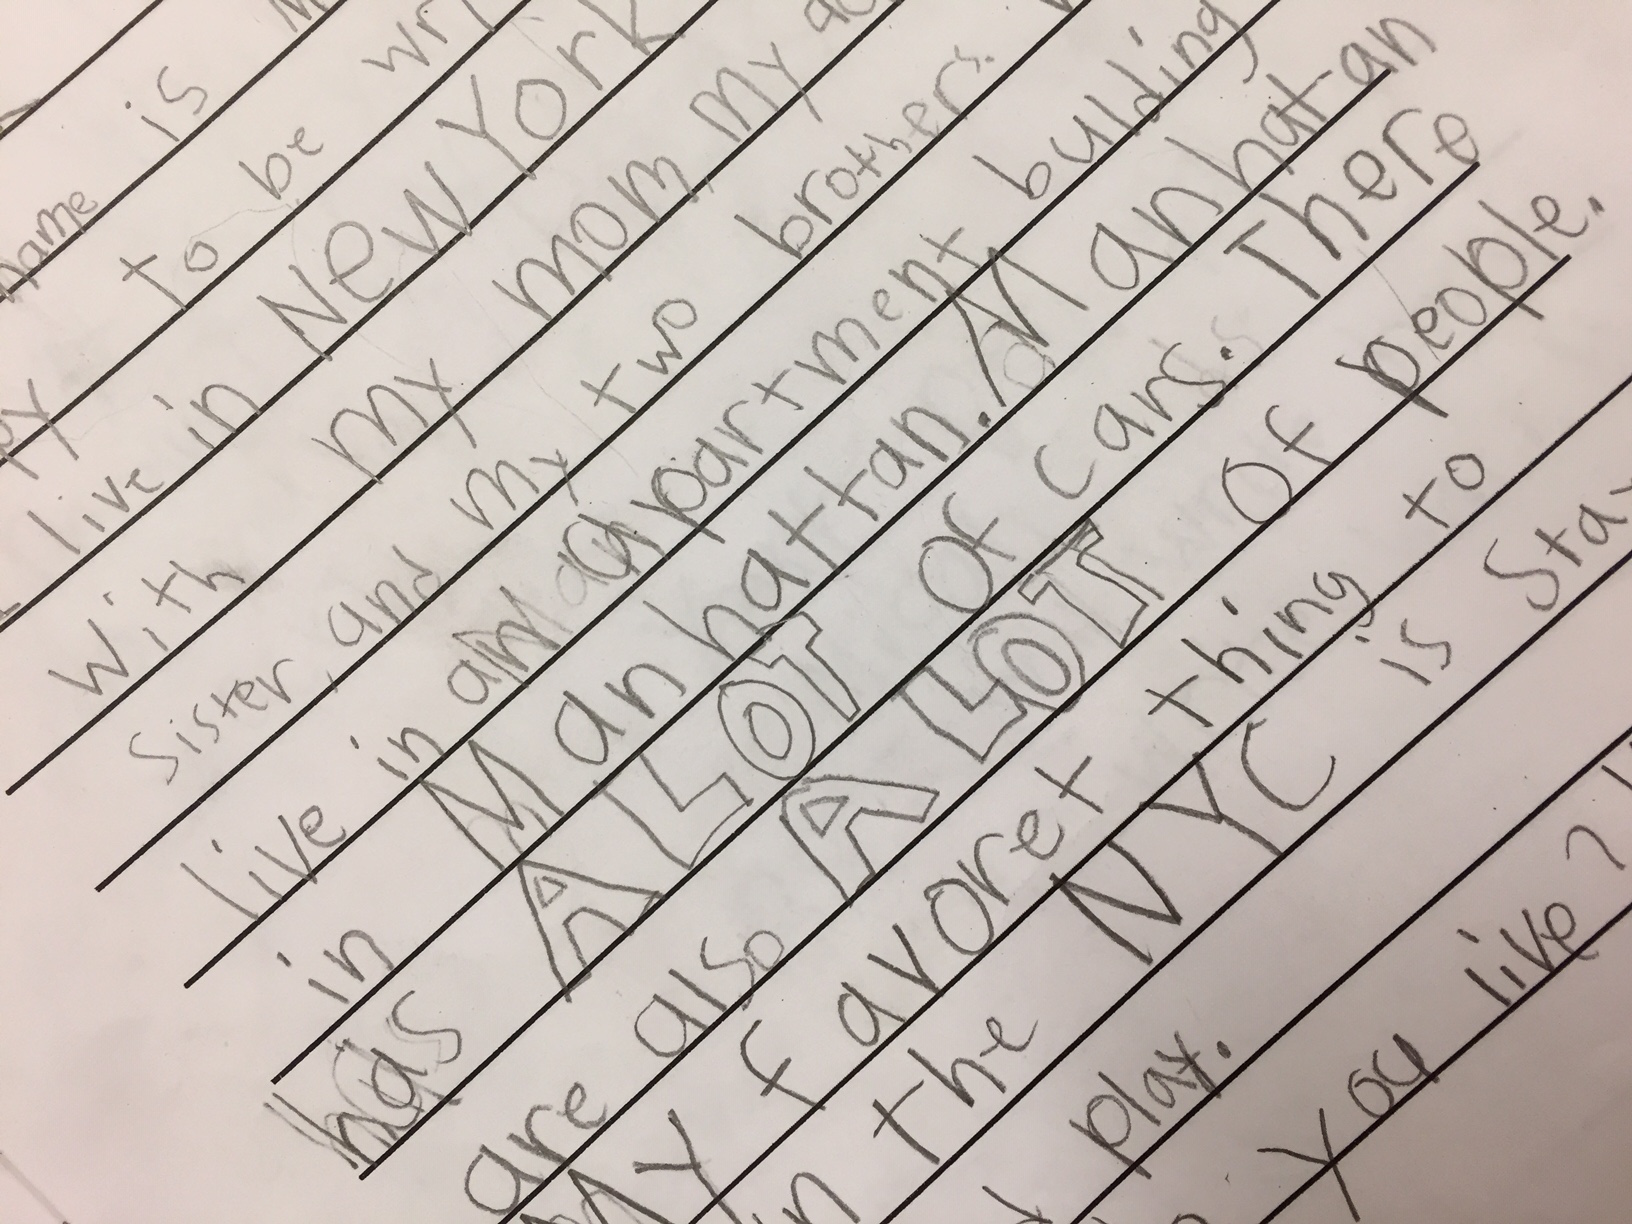 name is
to be wri
live in New York
with my mom, my
sister, and my two brothers.
live in an apartment building
in Manhattan. Manhatan
has A LOT of cars. There
are also A LOT of people.
My favoret thing to
in the NYC is stay
play.
you live?